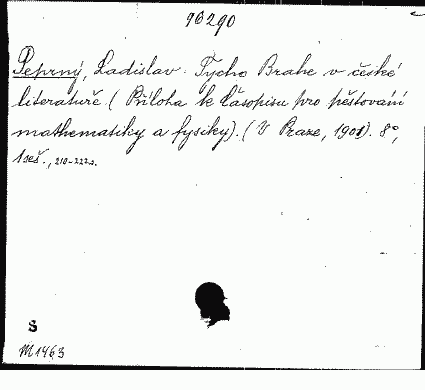 96290
Peprný, Ladislav: Tycho Brahe v české
literatuře (Příloha ke Časopisu pro pěstování
mathematiky a fysiky). (V Praze, 1901). 8°,
1 seš., 210-222 s.
S
M 1463